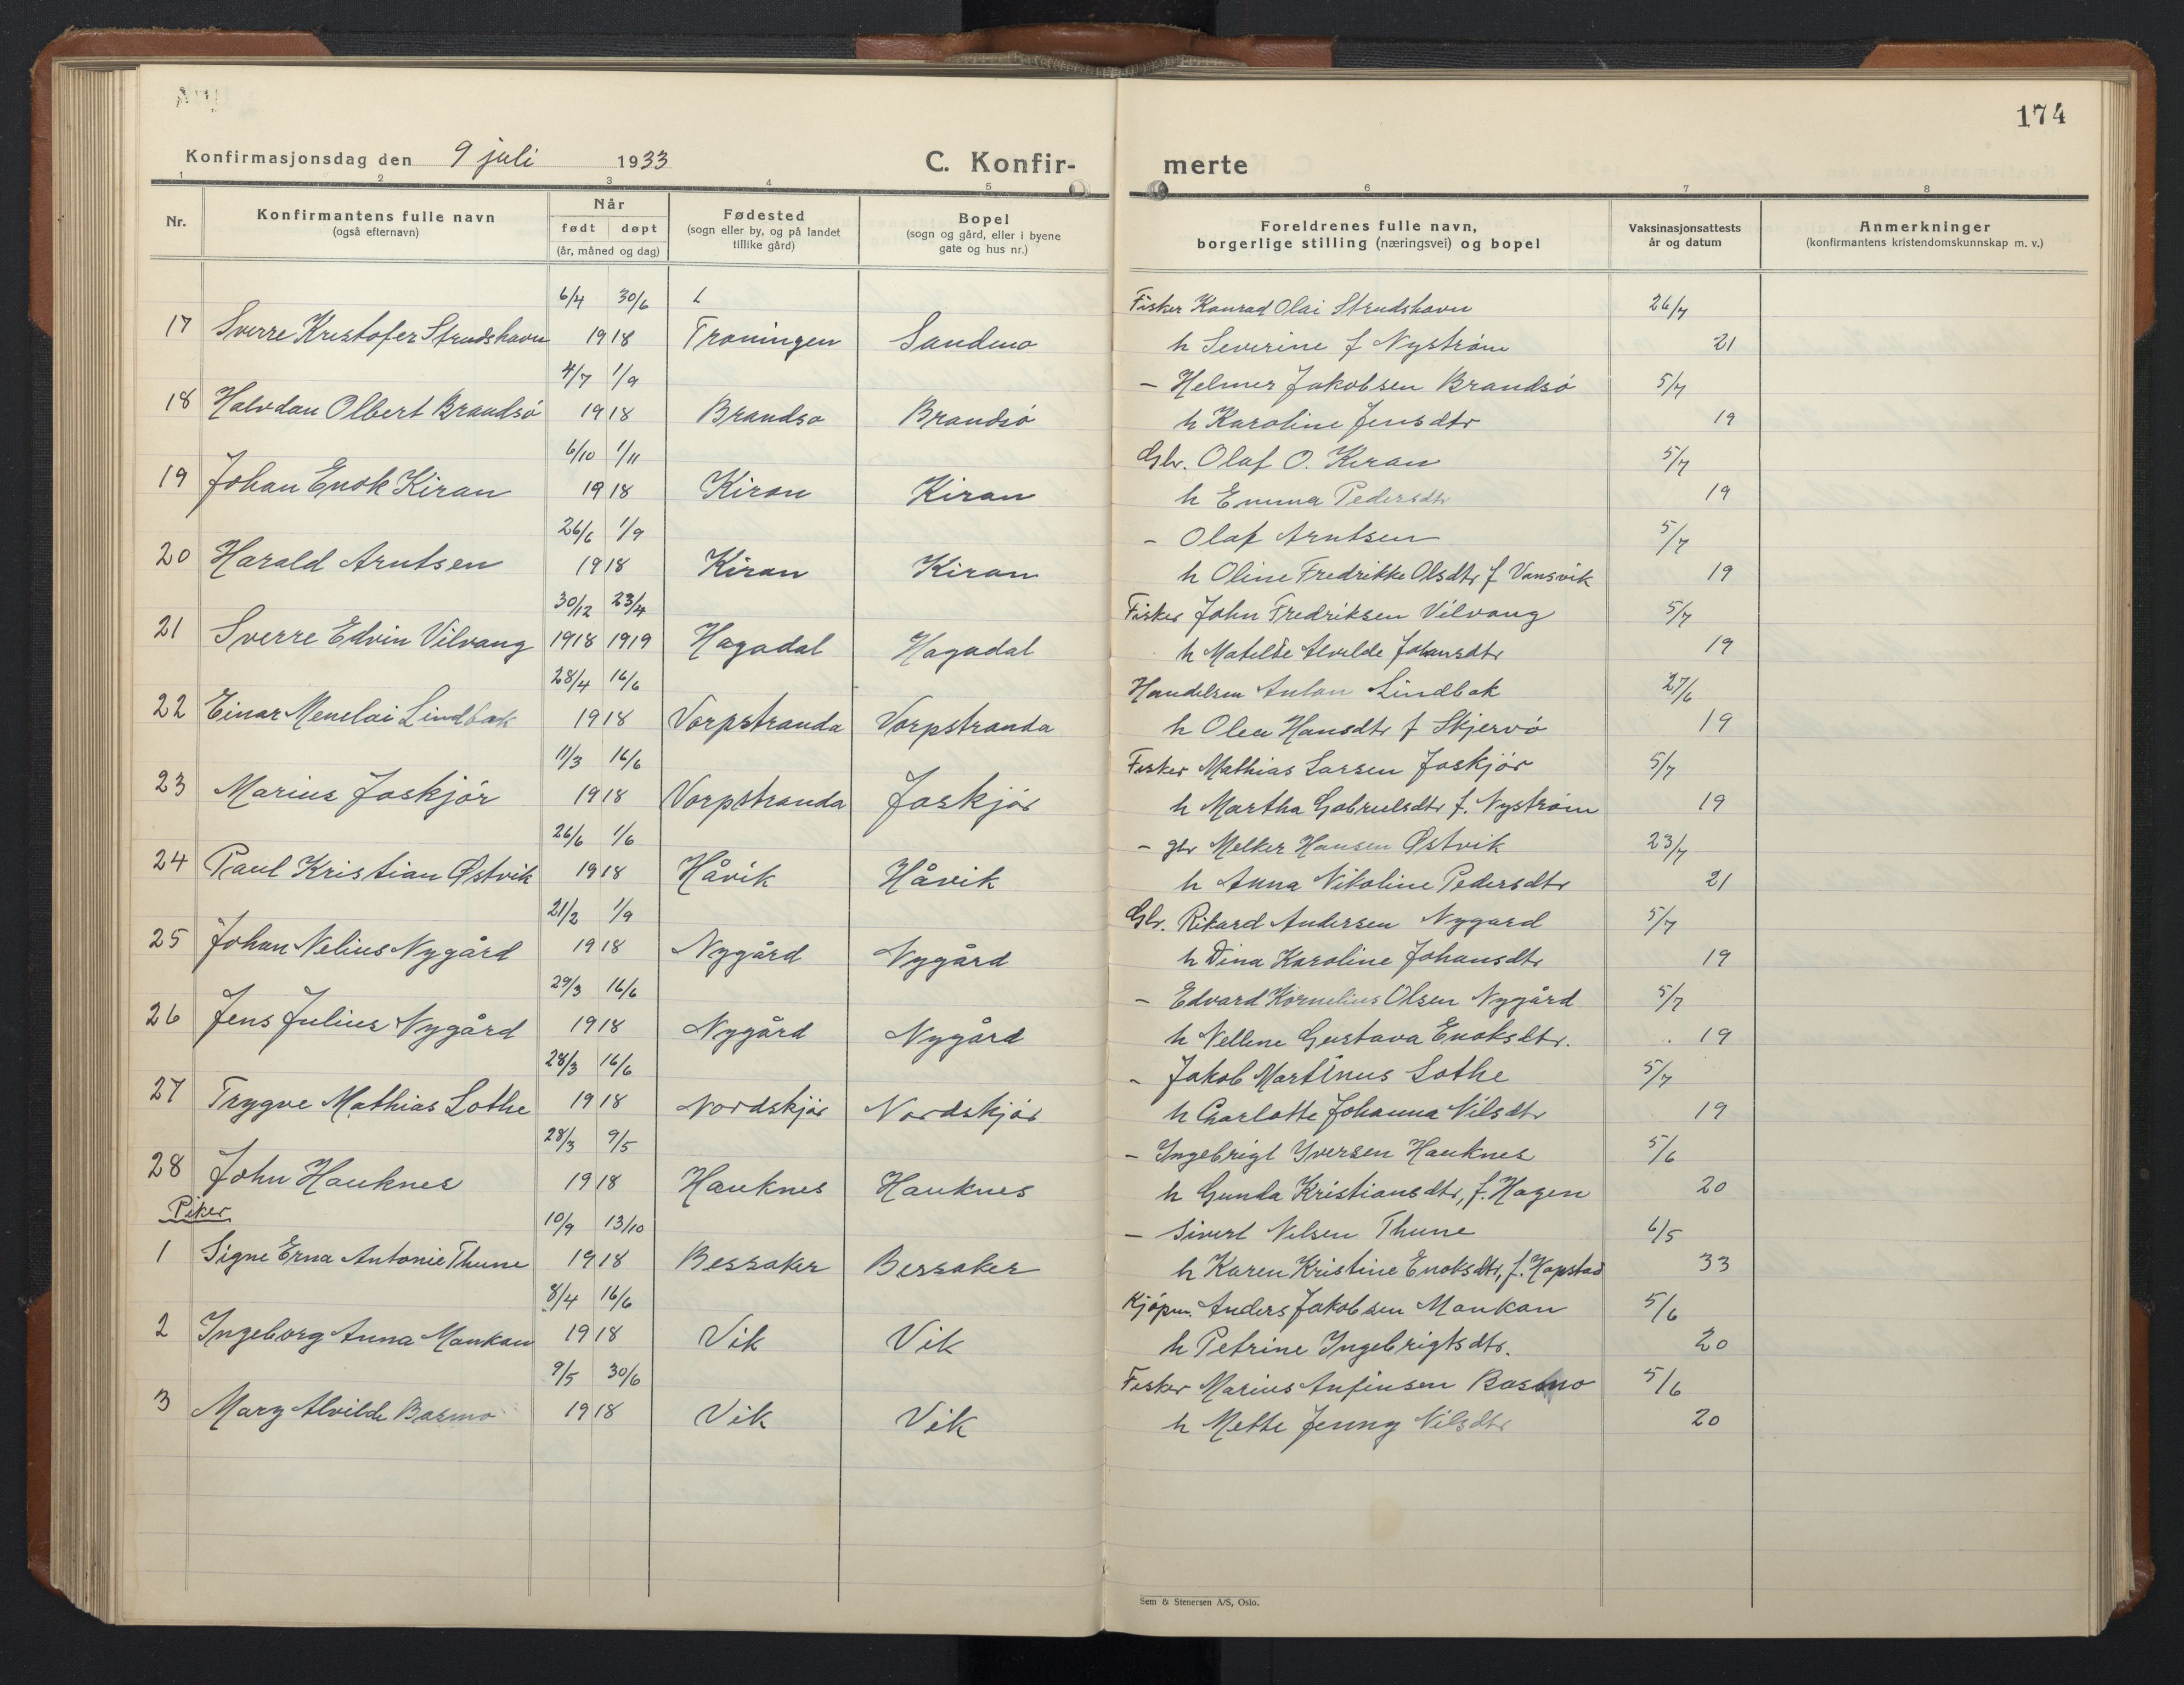 174
Konfirmasjonsdag den 9 juli 1933 C. Konfir- merte
1 2 3 4 5 6 7 8
Nr. Konfirmantens fulle navn (også efternavn) Når født døpt (år, måned og dag) Fødested (sogn eller by, og på landet tillike gård) Bopel (sogn og gård, eller i byene gate og hus nr.) Foreldrenes fulle navn, borgerlige stilling (næringsvei) og bopel Vaksinasjonsattests år og datum Anmerkninger (konfirmantens kristendomskunnskap m. v.)
6/4 30/6 Fisker Konrad Olai Strudshavn 26/7
17 Sverre Kristofer Strudshavn 1918 Troningen Sandmo h Severine f Nystrøm 21
4/7 1/9 - Helmer Jakobsen Brandsö 5/7
18 Halvdan Olbert Brandsö 1918 Brandsö Brandsö h Karoline Jensdtr 19
6/10 1/11 Gbr. Olaf O. Kiran 5/7
19 Johan Enok Kiran 1918 Kiran Kiran h Emma Pedersdtr 19
26/6 1/9 - Olaf Arntsen 5/7
20 Harald Arntsen 1918 Kiran Kiran h Oline Fredrikke Olsdtr f Vansvik 19
30/12 23/4 Fisker John Fredriksen Vilvang 5/7
21 Sverre Edvin Vilvang 1918 1919 Hagadal Hagadal h Matilde Alvilde Johansdtr 19
28/4 16/6 Handelsm Anton Lindbak 27/6
22 Einar Menelai Lindbak 1918 Vorpstranda Vorpstranda h Olea Hansdtr f Skjervö 19
11/3 16/6 Fisker Mathias Larsen Joskjör 5/7
23 Marius Joskjör 1918 Vorpstranda Joskjör h Martha Gabrielsdtr f. Nystrøm 19
26/6 1/6 - gbr Melker Hansen Østvik 23/7
24 Paul Kristian Østvik 1918 Håvik Håvik h Anna Nikoline Pedersdtr 21
21/2 1/9 Gbr. Rikard Andersen Nygaard 5/7
25 Johan Nelius Nygård 1918 Nygård Nygård h Dina Karoline Johansdtr 19
29/3 16/6 - Edvard Kornelius Olsen Nygård 5/7
26 Jens Julius Nygård 1918 Nygård Nygård h Nelline Gustava Enoksdtr. 19
28/3 16/6 - Jakob Martinus Lothe 5/7
27 Trygve Mathias Lothe 1918 Nordskjör Nordskjör h Charlotte Johanna Nilsdtr 19
28/3 9/5 - Ingebrigt Iversen Hauknes 5/6
28 John Hauknes 1918 Hauknes Hauknes h Gunda Kristiansdtr, f. Hagen 20
Piker 10/9 13/10 - Sivert Nilsen Thune 6/5
1 Signe Erna Antonie Thune 1918 Bessaker Bessaker h Karen Kristine Enoksdtr, f. Hopstad 33
8/4 16/6 Kjöpm. Anders Jakobsen Monkan 5/6
2 Ingeborg Anna Monkan 1918 Vik Vik h Petrine Ingebrigtsdtr. 20
9/5 30/6 Fisker Marius Anfinsen Basmo 5/6
3 Mary Alvilde Basmo 1918 Vik Vik h Mette Jenny Nilsdtr 20
Sem & Stenersen A/S, Oslo.